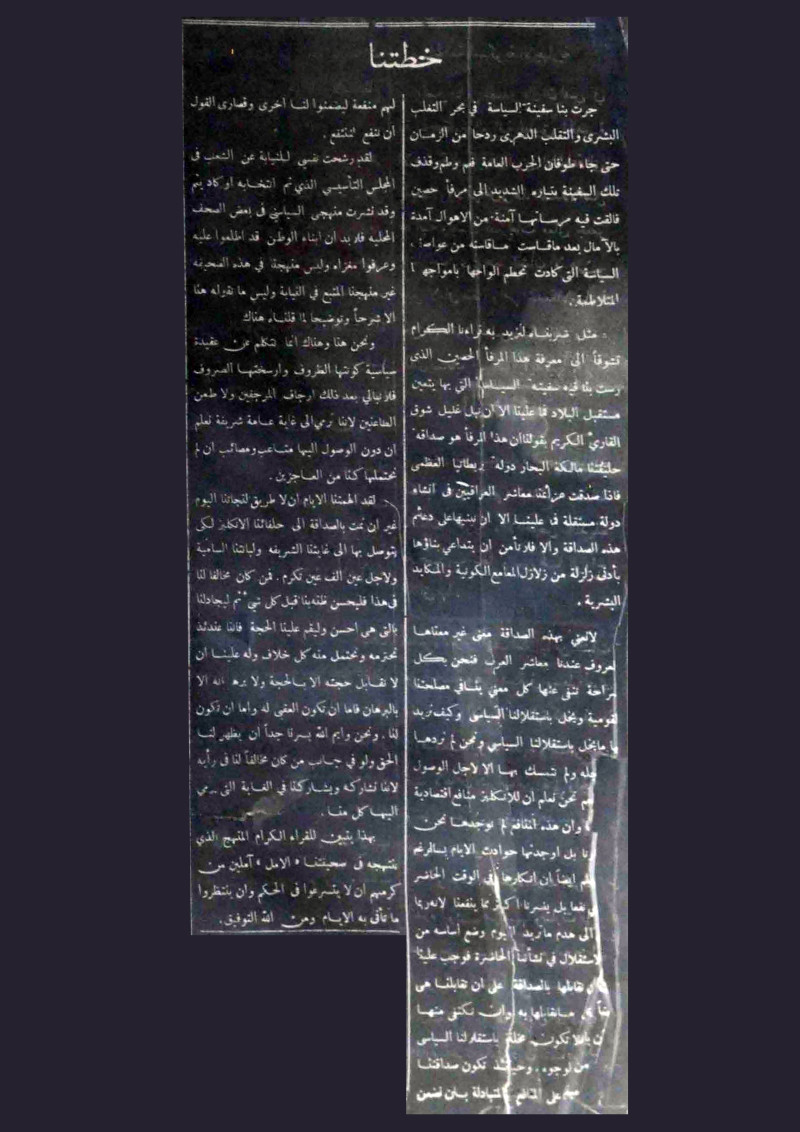 خطتنا
جرت بنا سفينة السياسة في بحر التغلب
البشرى والتقلب الدهرى ردحا من الزمان
حتى جاء طوفان الحرب العامة فطم وطم وقذف
تلك السفينة بتياره الشديد الى مرفأ حصين
فالقت فيه مرساتها آمنة من الاهوال آمدة
بالآمال بعد ماقاست ماقاسته من عواصف
السياسة التى كادت تحطم الواحها بامواجها
المتلاطمة .
مثل ضربناه لنزيد به قراءنا الكرام
تشوقاً الى معرفة هذا المرفأ الحصين الذى
رست بنا فيه سفينة السياسة التى بها يتعين
مستقبل البلاد فما علينا الا ان نبل غليل شوق
القارئ الكريم بقولنا ان هذا المرفأ هو صداقة
حليفتنا مالكة البحار دولة بريطانيا العظمى
فاذا صدقت عزائمنا معاشر العراقيين فى انشاء
دولة مستقلة فما علينا الا ان نبنيها على دعائم
هذه الصداقة والا فلا نأمن ان يتداعى بناؤها
بأدنى زلزلة من زلازل المطامع الكونية والمكايد
البشرية .
لانعنى بهذه الصداقة معنى غير معناها
المعروف عندنا معاشر العرب فنحن بكل
صراحة ننفى عنها كل معنى ينافى مصلحتنا
القومية ويخل باستقلالنا السياسى وكيف نريد
بها مايخل باستقلالنا السياسي ونحن لم نردها
الا لاجله ولم نتمسك بها الا لاجل الوصول
نحن نعلم ان للانكليز منافع اقتصادية
وان هذه المنافع لم نوجدها نحن
بل اوجدتها حوادث الايام بالرغم
ايضاً ان انكارها فى الوقت الحاضر
نفعا بل يضرنا اكثر مما ينفعنا لانه ربما
الى هدم مانريد اليوم وضع أساسه من
الاستقلال في نشأتنا الحاضرة فوجب علينا
ان نقابلها بالصداقة على ان تقابلنا هى
بمثل مانقابلها به وان نكتفى منها
بأن لا تكون مخلة باستقلالنا السياسى
من الوجوه . وحينئذ تكون صداقتنا
على المنافع المتبادلة بان نضمن
لهم منفعة ليضمنوا لنا اخرى وقصارى القول
ان ننفع لننتفع .
لقد رشحت نفسى للنيابة عن الشعب فى
المجلس التأسيسي الذي تم انتخابه او كاد يتم
وقد نشرت منهجي السياسى فى بعض الصحف
المحلية فلابد ان ابناء الوطن قد اطلعوا عليه
وعرفوا مغزاه وليس منهجنا في هذه الصحيفة
غير منهجنا المتبع في النيابة وليس ما نقوله هنا
الا شرحاً وتوضيحا لما قلناه هناك
ونحن هنا وهناك انما نتكلم عن عقيدة
سياسية كونتها الظروف وارسختها الصروف
فلا نبالي بعد ذلك ارجاف المرجفين ولا طعن
الطاعنين لاننا نرمي الى غاية عامة شريفة نعلم
ان دون الوصول اليها متاعب ومصائب ان لم
نحتملها كنا من العاجزين .
لقد الهمتنا الايام ان لا طريق لنجاتنا اليوم
غير ان نمت بالصداقة الى حلفائنا الانكليز لكى
نتوصل بها الى غايتنا الشريفة ولبانتنا السامية
ولاجل عين الف عين تكرم . فمن كان مخالفا لنا
فى هذا فليحسن ظنه بنا قبل كل شيء ثم ليجادلنا
بالتى هى احسن وليقم علينا الحجة فاننا عندئذ
نحترمه ونحتمل منه كل خلاف وله علينا ان
لا نقابل حجته الا بالحجة ولا برهانه الا
بالبرهان فاما ان تكون العقبى له واما ان تكون
لنا . ونحن وايم الله يسرنا جداً ان يظهر لنا
الحق ولو في جانب من كان مخالفاً لنا فى رأيه
لاننا نشاركه ويشاركنا فى الغاية التى يرمي
اليها كل منا .
بهذا يتبين للقراء الكرام المنهج الذي
ننتهجه فى صحيفتنا « الامل » آملين من
كرمهم ان لا يتسرعوا فى الحكم وان ينتظروا
ما تأتى به الايام ومن الله التوفيق .